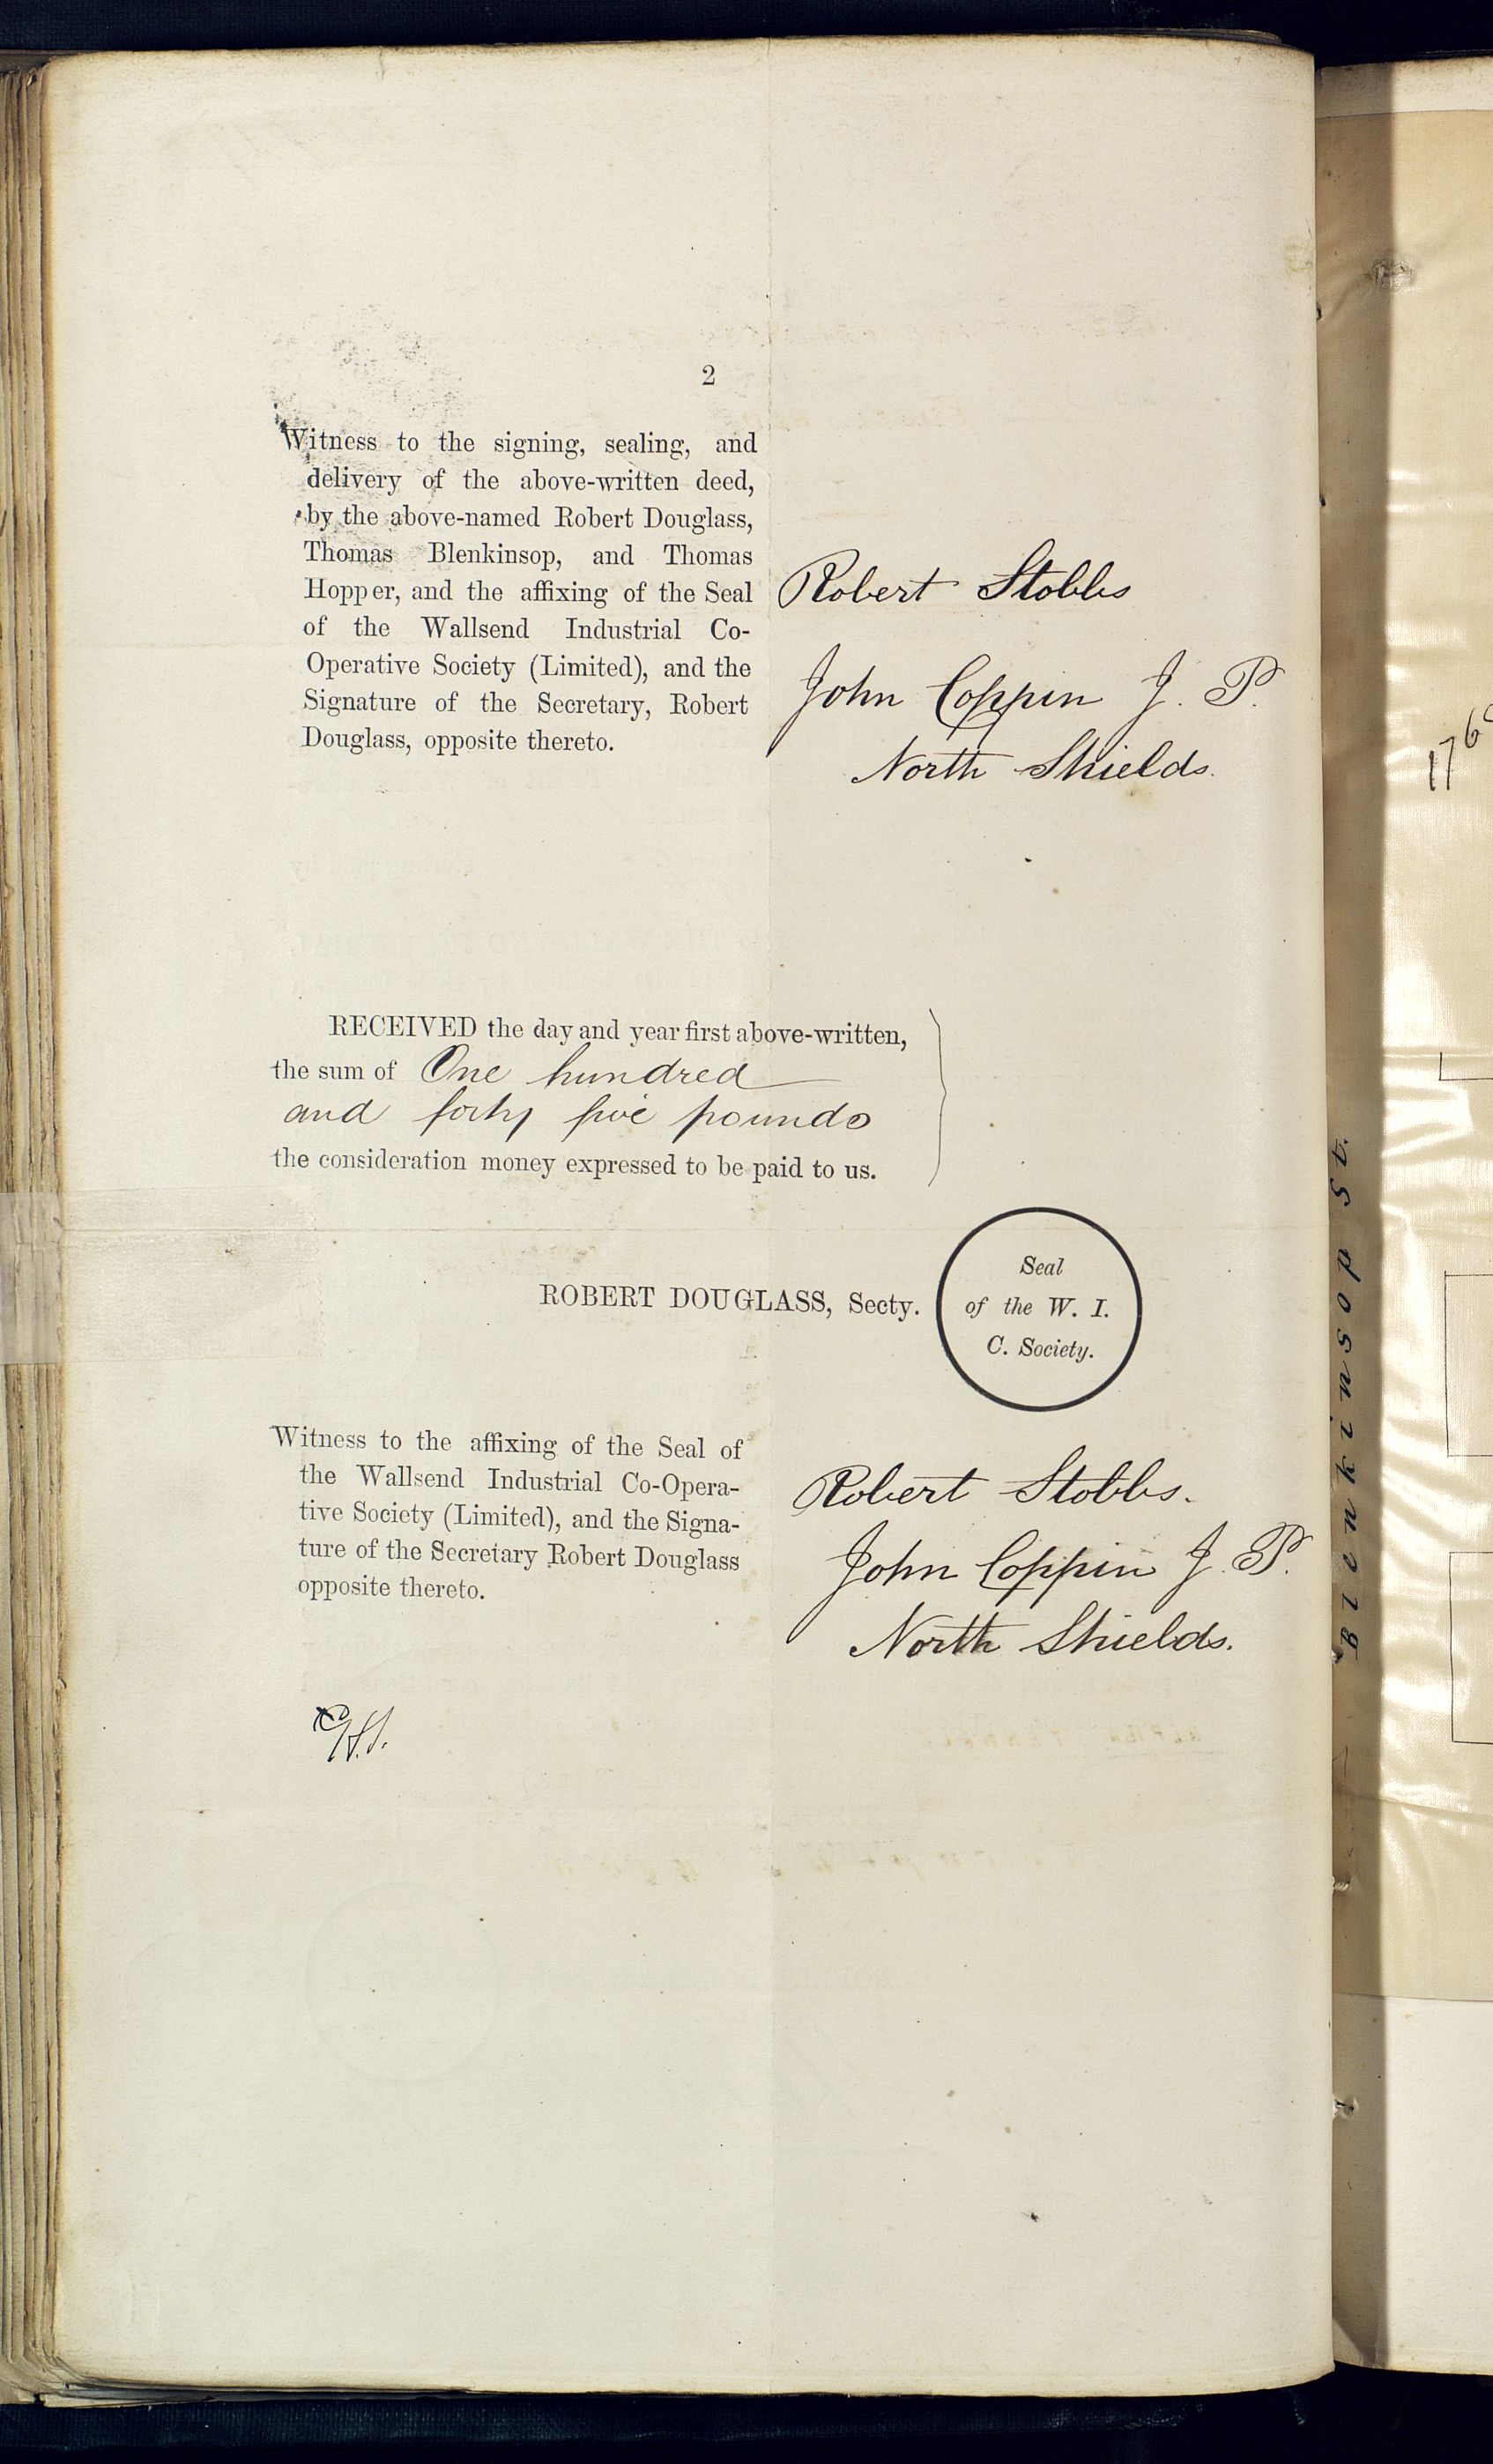 2
Witness to the signing, sealing, and
delivery of the above-written deed,
by the above-named Robert Douglass,
Thomas Blenkinsop, and Thomas
Hopper, and the affixing of the Seal
of the Wallsend Industrial Co-
Operative Society (Limited), and the
Signature of the Secretary, Robert
Douglass, opposite thereto.
Robert Stobbs
John Coppin J. P.
North Shields.
RECEIVED the day and year first above-written,
the sum of One hundred
and forty five pounds
the consideration money expressed to be paid to us.
ROBERT DOUGLASS, Secty.
Seal
of the W. I.
C. Society.
Witness to the affixing of the Seal of
the Wallsend Industrial Co-Opera-
tive Society (Limited), and the Signa-
ture of the Secretary Robert Douglass
opposite thereto.
Robert Stobbs.
John Coppin J. P.
North Shields.
Blenkinsop St.